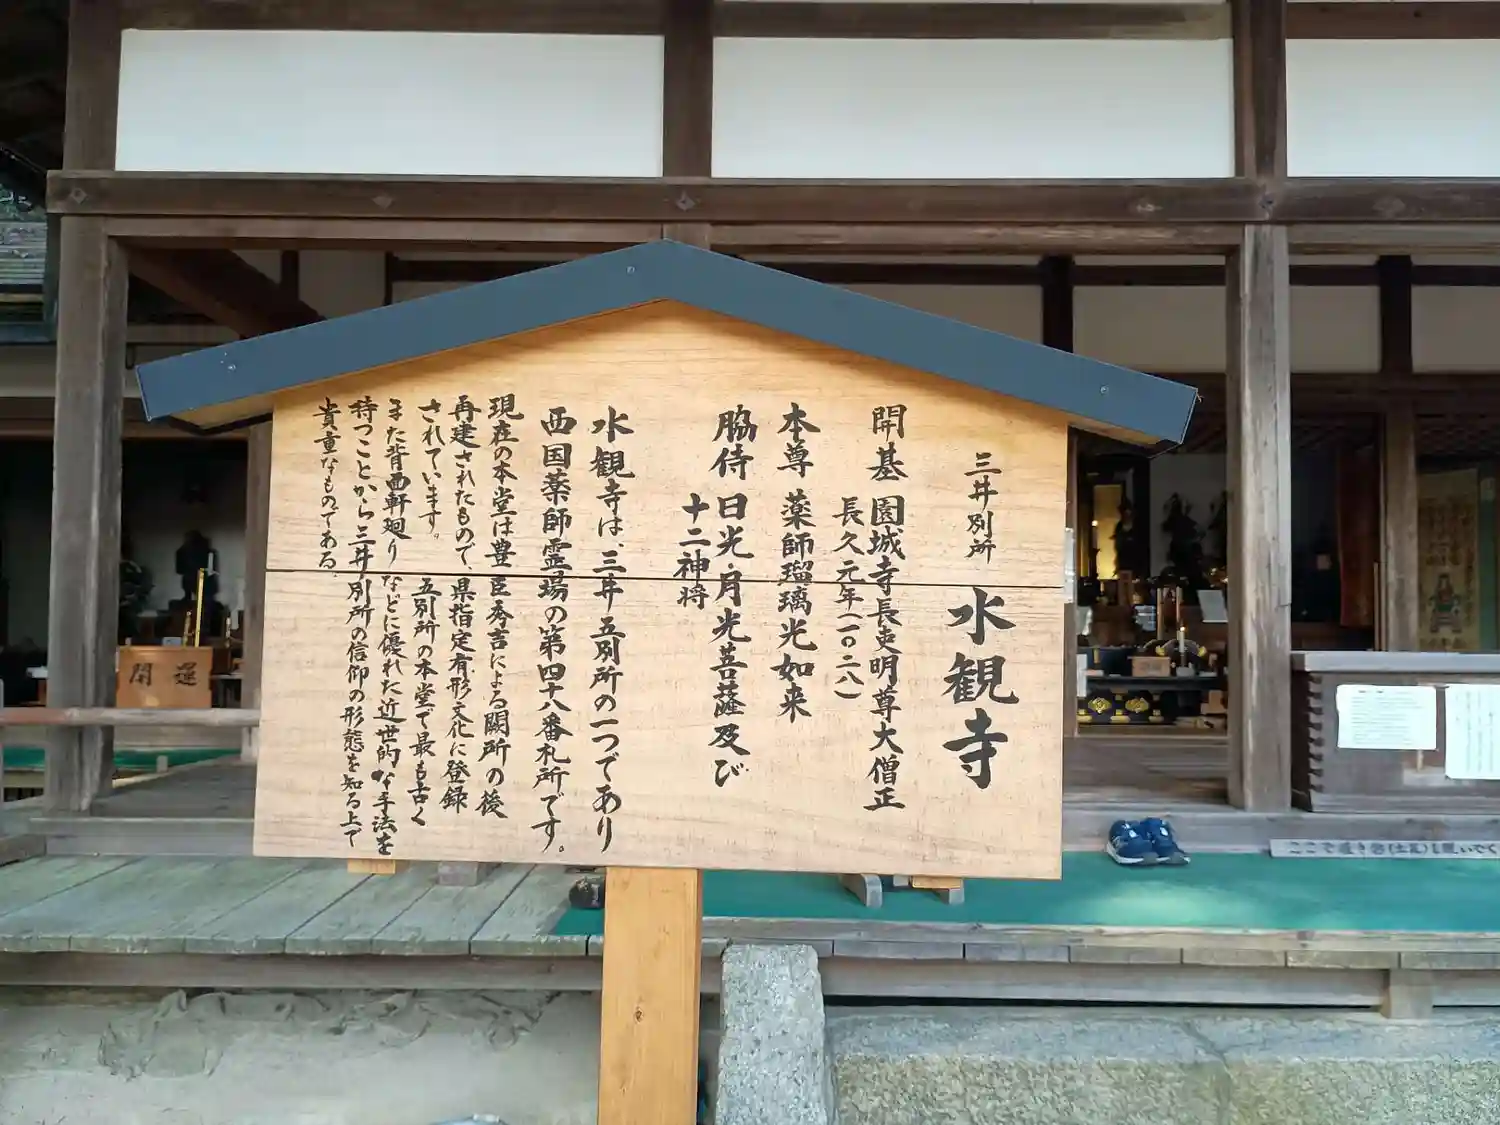 三井別所 水観寺
開基 園城寺長吏明尊大僧正
長久元年(一〇二八)
本尊 薬師瑠璃光如来
脇侍 日光・月光菩薩及び
十二神将
水観寺は、三井五別所の一つであり
西国薬師霊場の第四十八番札所です。
現在の本堂は豊臣秀吉による闕所の後
再建されたもので、県指定有形文化に登録
されています。五別所の本堂で最も古く
また背面軒廻りなどに優れた近世的な手法を
持つことから三井別所の信仰の形態を知る上で
貴重なものである。
開運